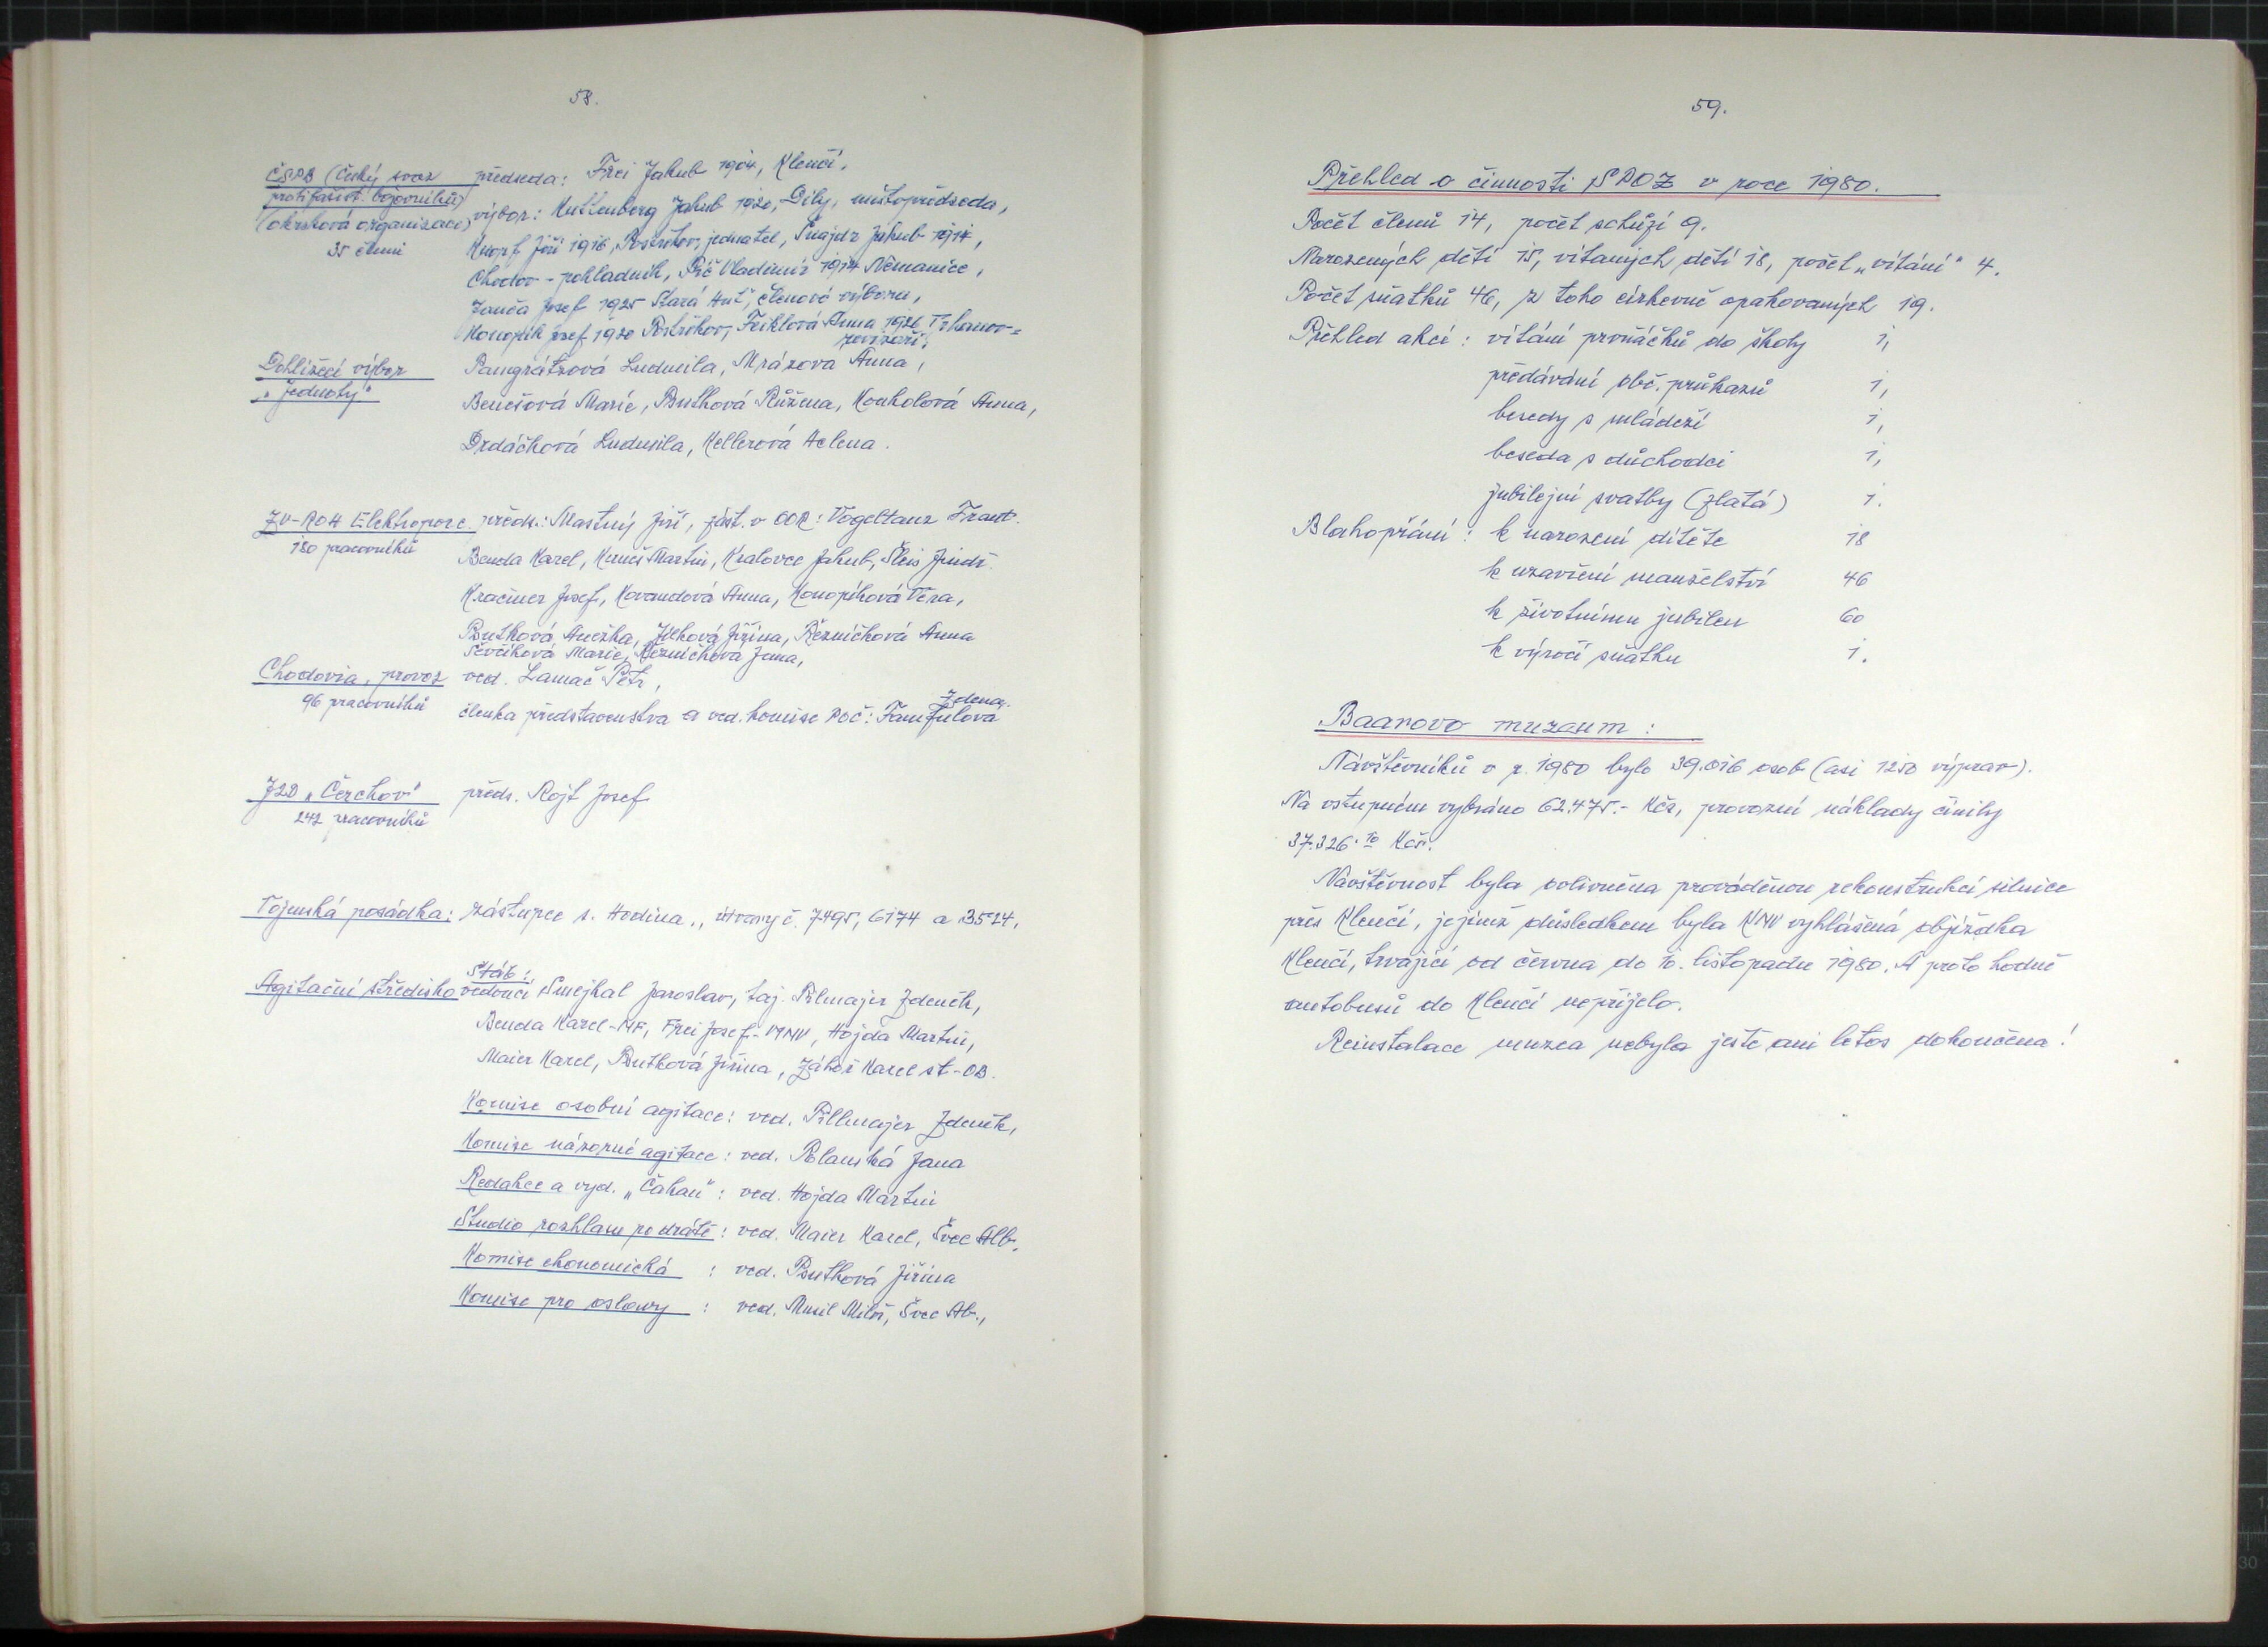 58.
ČSPB (Český svaz předseda: Frei Jakub 1904, Klenčí,
protifašist. bojovníků)
(okrsková organizace) výbor: Kuttenberg Jakub 1920, Díly, místopředseda,
35 členů Knopf Jiří 1916, Postřekov, jednatel, Šnajdr Jakub 1914,
Chodov - pokladník, Píč Vladimír 1914 Nemanice,
Janča Josef 1925 Stará Huť, členové výboru,
Konopík Josef 1920 Postřekov, Feiklová Anna 1926 Trhanov=
Dohlížecí výbor Pangrátzová Ludmila, Mrázova Anna,
„Jednoty" Benešová Marie, Buthová Růžena, Kouholová Anna,
Drdáčková Ludmila, Kellerová Helena.
ZV-ROH Elektroporc. předs.: Mastný Jiří, zást. v OOR: Vogeltanz Frant.
180 pracovníků Benda Karel, Martin, Královec Jakub, Šleis Jindř.
Kračmer Josef, Kovandová Anna, Konopíková Věra,
Buthová Anežka, Jílková Jiřina, Řezníčková Anna
Ševčíková Marie, Řezníčková Jana,
Chodovia, provoz ved. Lamač Petr,
96 pracovníků členka představenstva a ved. komise POČ: Famfulová Zdena.
JZD „Čerchov" předs. Rojt Josef
242 pracovníků
Vojenská posádka: zástupce s. Hodina., útvary č. 7495, 6174 a 3524.
Štáb:
Agitační středisko vedoucí Smejkal Jaroslav, taj. Pilmajer Zdeněk,
Benda Karel-NF, Frei Josef-MNV, Hojda Martin,
Maier Karel, Buthová Jiřina, Záhoř Karel st-OB.
Komise osobní agitace: ved. Pillmajer Zdeněk,
Komise názorné agitace: ved. Polanská Jana
Redakce a vyd. „Čakan": ved. Hojda Martin
Studio rozhlasu po drátě: ved. Maier Karel, Švec Alb.
Komise ekonomická : ved. Buthová Jiřina
Komise pro oslavy : ved. Musil Miloš, Švec Ab.,
59.
Přehled o činnosti SPOZ v roce 1980.
Počet členů 14, počet schůzí 9.
Narozených dětí 18, vítaných dětí 18, počet „vítání" 4.
Počet sňatků 46, z toho církevně opakovaných 19.
Přehled akcí: vítání prvňáčků do školy 1,
předávání obč. průkazů 1,
besedy s mládeží 1,
beseda s důchodci 1,
jubilejní svatby (zlatá) 1.
Blahopřání: k narození dítěte 18
k uzavření manželství 46
k životnímu jubileu 60
k výročí sňatku 1.
Baarovo muzeum:
Návštěvníků v r. 1980 bylo 39.016 osob (asi 1250 výprav).
Na vstupném vybráno 62.475.- Kčs, provozní náklady činily
37.326.10 Kčs.
Návštěvnost byla ovlivněna prováděnou rekonstrukcí silnice
přes Klenčí, jejímž důsledkem byla KNV vyhlášená objížďka
Klenčí, trvající od června do 10. listopadu 1980. A proto hodně
autobusů do Klenčí nepřijelo.
Reinstalace muzea nebyla ještě ani letos dokončena!